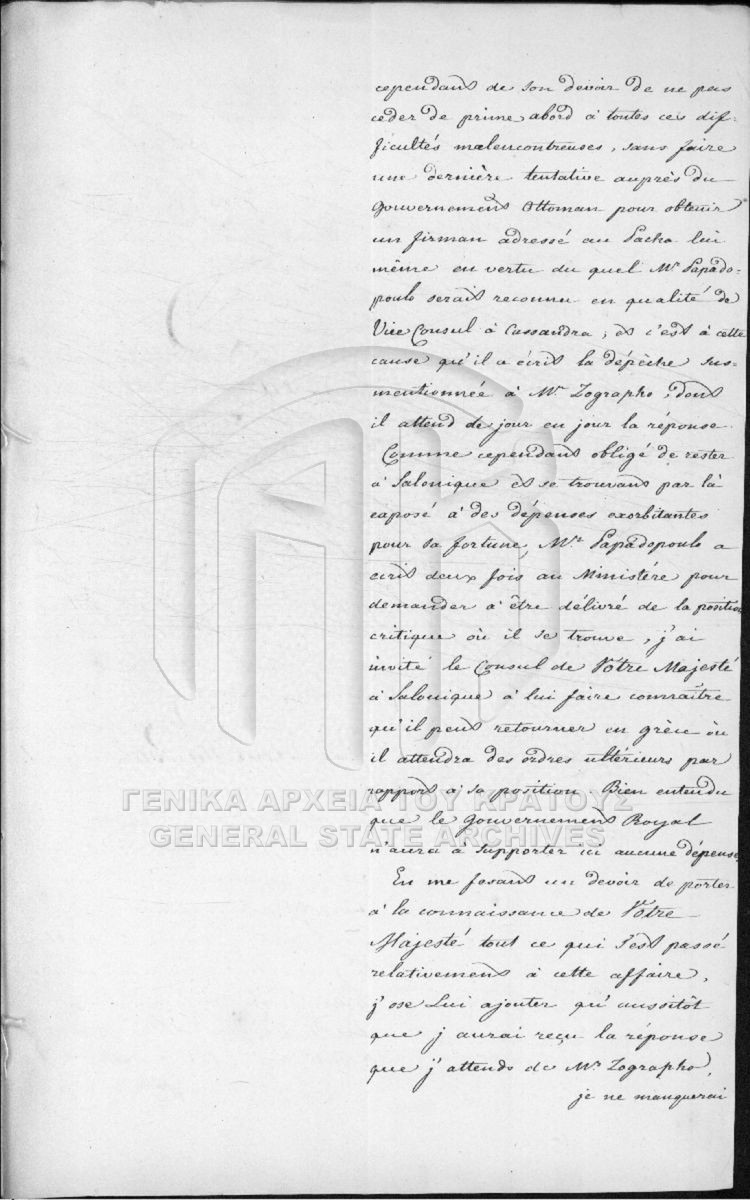 cependant de son devoir de ne pas
ceder de prime abord à toutes ces dif-
ficultés malencontreuses, sans faire
une dernière tentative auprès du
gouvernement Ottoman pour obtenir
un firman adressé au Pacha lui
même en vertu du quel Mr Papado-
poulo serait reconnu en qualité de
Vice Consul à Cassandra, et c'est à cette
cause qu'il a écrit la dépêche sus-
mentionnée à Mr. Zographo, dont
il attend de jour en jour la réponse.
Comme cependant obligé de rester
à Salonique et se trouvant par là
exposé à des dépenses exorbitantes
pour sa fortune, Mr. Papadopoulo a
écrit deux fois au Ministère pour
demander à être délivré de la position
critique où il se trouve, j'ai
invité le Consul de Vôtre Majesté
à Salonique à lui faire connaître
qu'il peut retourner en grèce où
il attendra des ordres ultérieurs par
rapport à sa position. Bien entendu
que le gouvernement Royal
n'aura à supporter ici aucune dépense.
En me fesant un devoir de porter
à la connaissance de Vôtre
Majesté tout ce qui s'est passé
relativement à cette affaire,
j'ose Lui ajouter qu'aussitôt
que j'aurai reçu la réponse
que j'attends de Mr Zographo,
je ne manquerai
ΓΕΝΙΚΑ ΑΡΧΕΙΑ ΤΟΥ ΚΡΑΤΟΥΣ
GENERAL STATE ARCHIVES